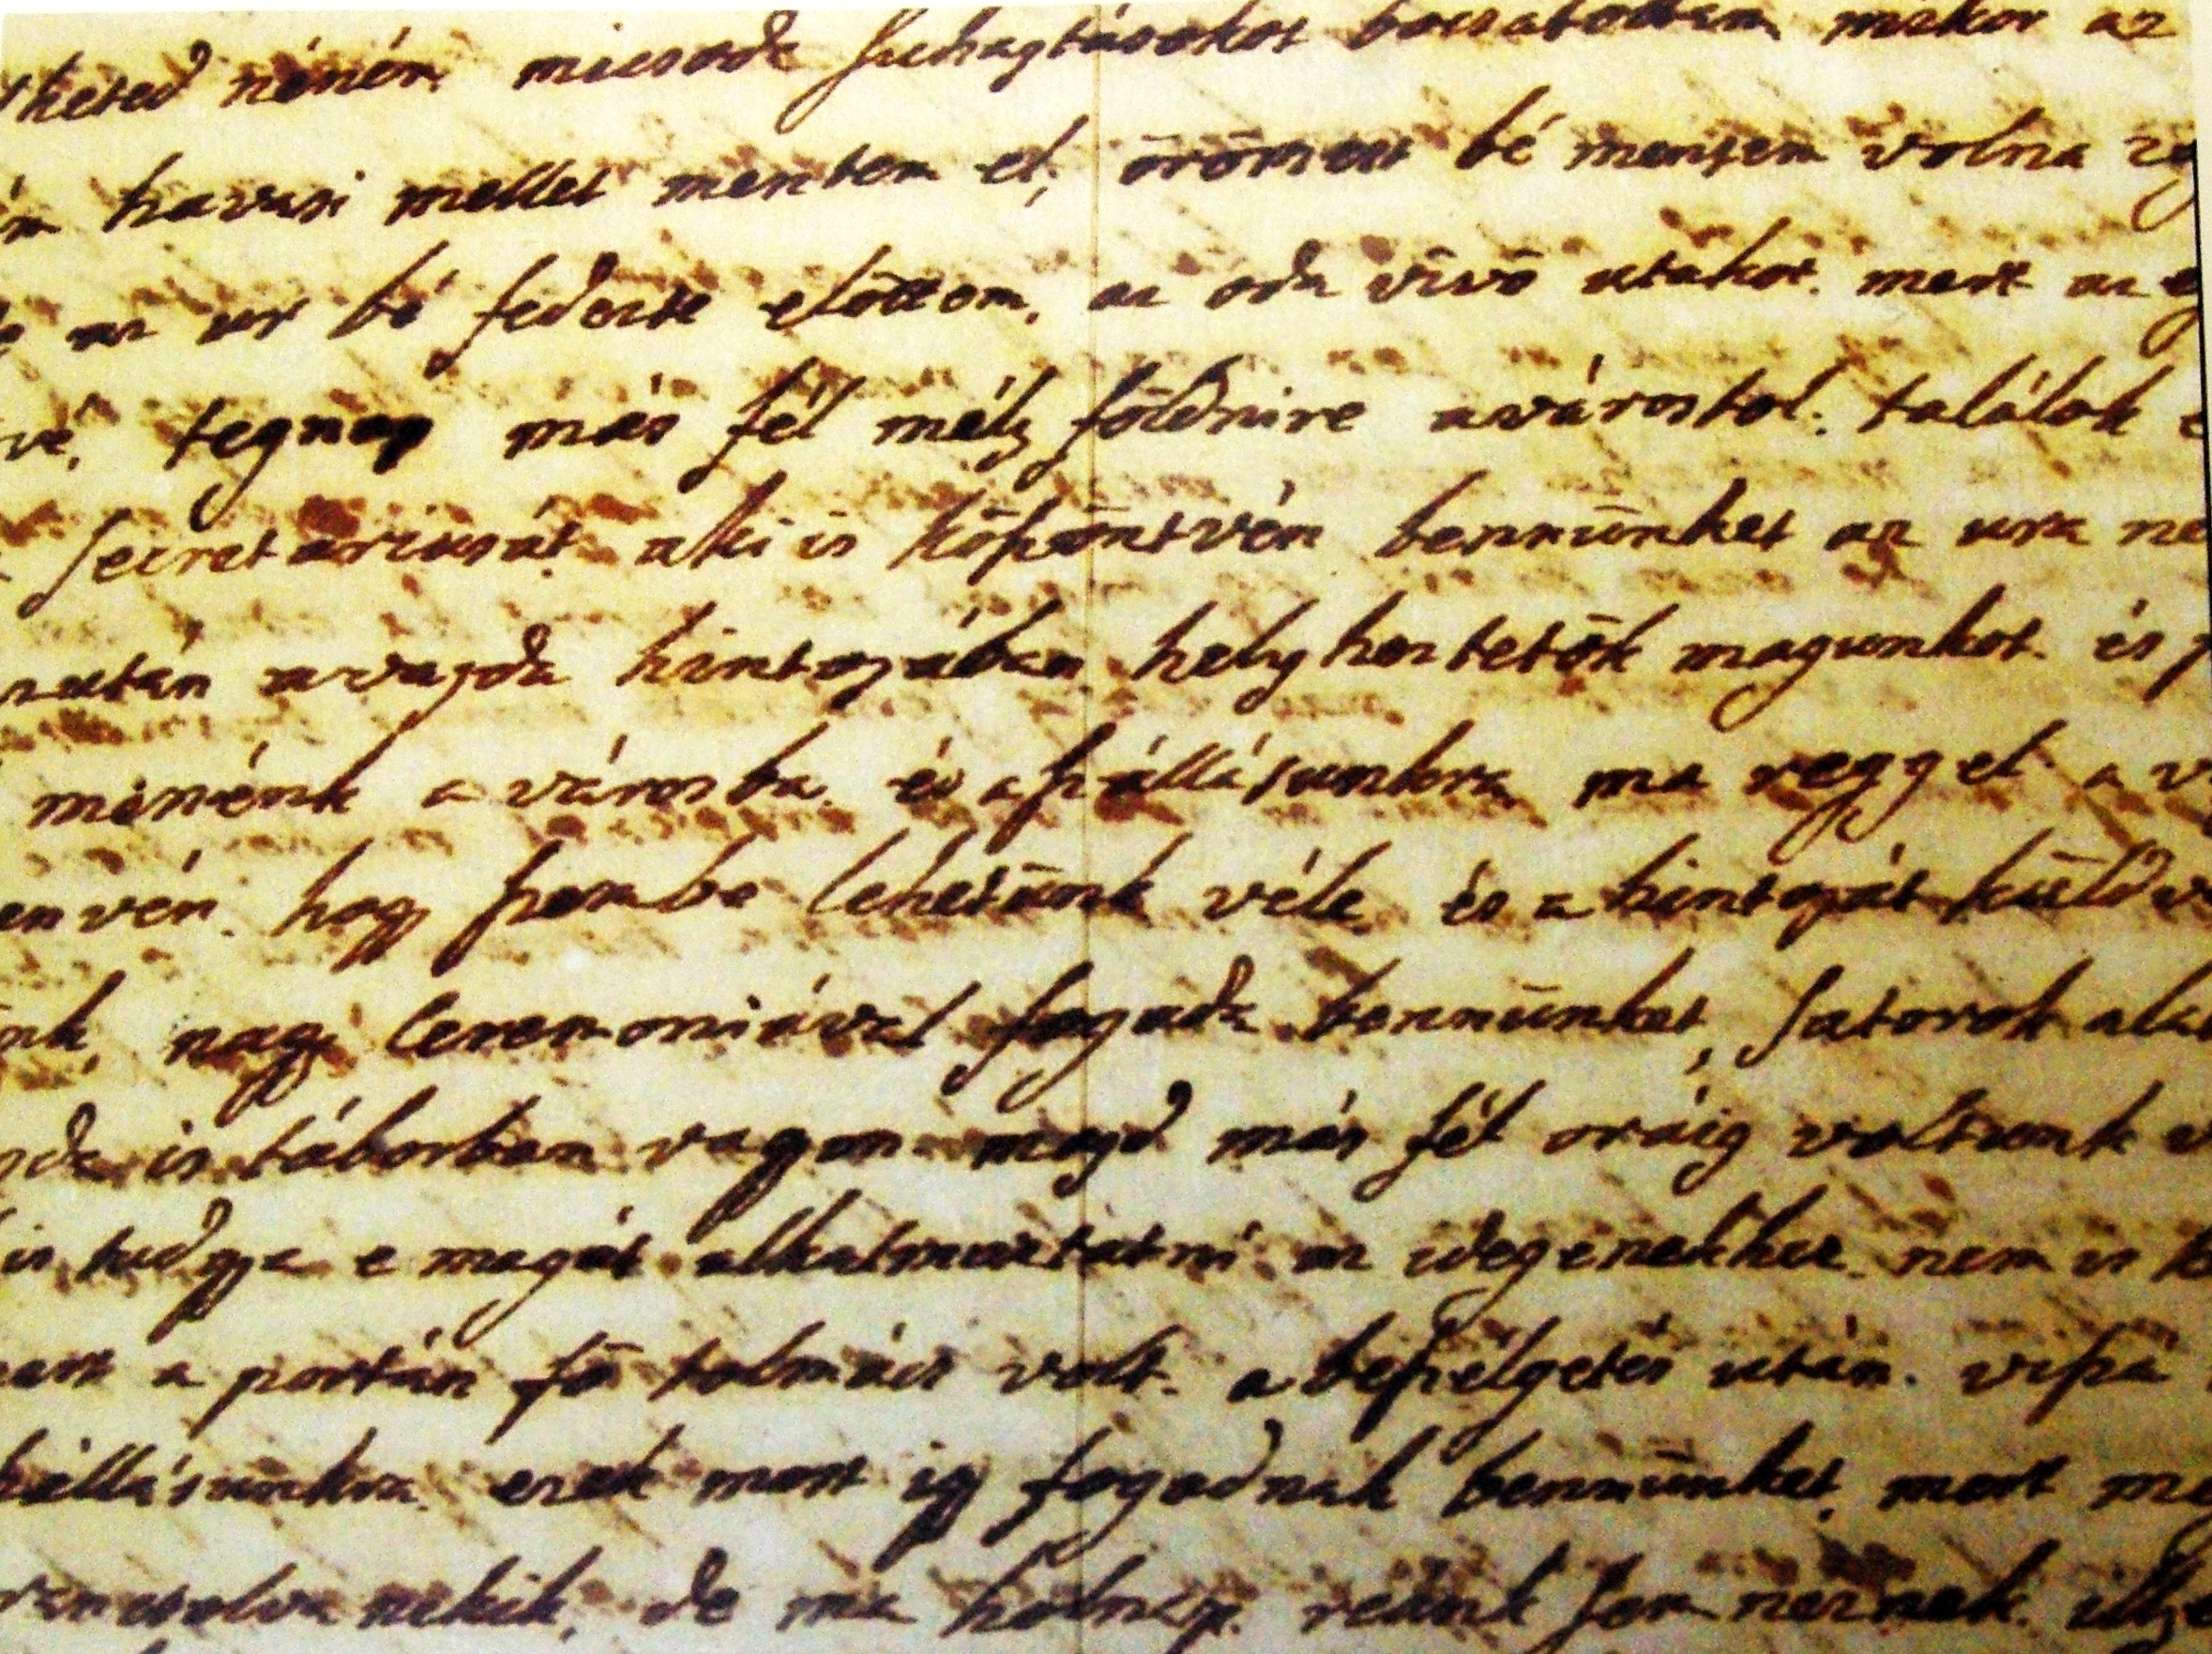 theted néném micsoda suhajtásokot bocsátottam mikor az
havasi mellet mentem el, örömest bé mentem volna
az ur bé fedezte elöttem, az oda vivö utakot. mert az
vé, tegnap más fél mély földnire a várostol. találok
secretariusát. aki is köszöntvén bennünket az ura ne
azután a vajda hintojában helyheztetök magunkot. és
menénk a városba. és a szállásunkra, ma reggel a v
envén. hogy szembe lehetünk véle, és a hintoját küldv
nk, nagy ceremoniával fogada bennünket, sátorok alat
da is táborban vagyon. majd más fél oráig voltunk
is tudgya e magát alkalmaztatni az idegenekhez. nem is k
mert a portán fö tolmács volt. a beszélgetés után. visza
szállásunkra. ezek most igy fogadnak bennünket, mert me
parancsolva nékik, de ma holnap. reánk sem néznek. illye